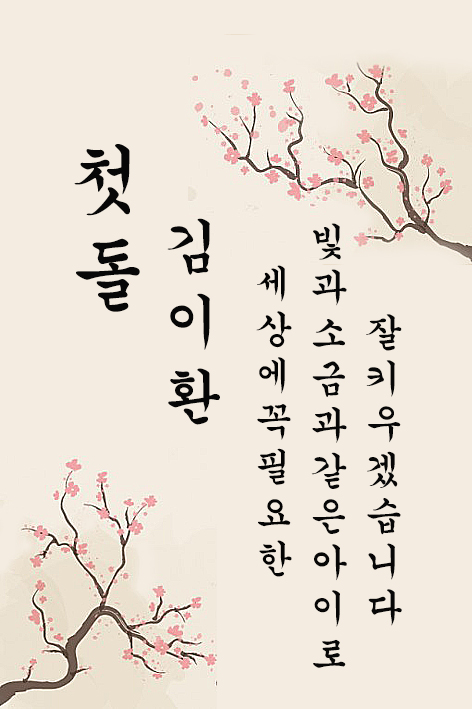 첫돌
김이환
세상에꼭필요한
빛과소금과같은아이로
잘키우겠습니다